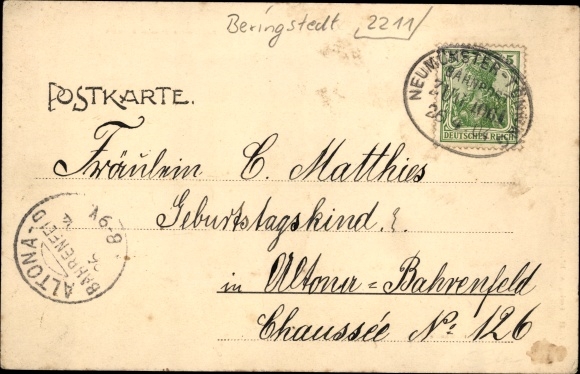 Beringstedt 2211
POSTKARTE.
NEUMÜNSTER-
BAHNPOST
DEUTSCHES REICH
Fräulein C. Matthies
Geburtstagskind.
in Altona=Bahrenfeld
Chaussée No 126
ALTONA-
BAHRENFELD